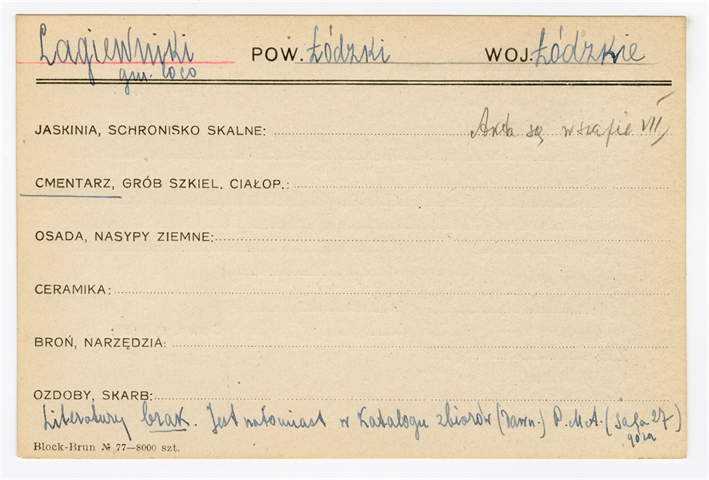 Łagiewniki POW. Łódzki WOJ. Łódzkie
gm. loco
JASKINIA, SCHRONISKO SKALNE: Akta są w szafie VII/
CMENTARZ, GRÓB SZKIEL. CIAŁOP.:
OSADA, NASYPY ZIEMNE:
CERAMIKA:
BROŃ, NARZĘDZIA:
OZDOBY, SKARB:
Literatury brak. Jest natomiast w Katalogu zbiorów (dawn.) P.M.A. (sala 27)
Block-Brun № 77—8000 szt.